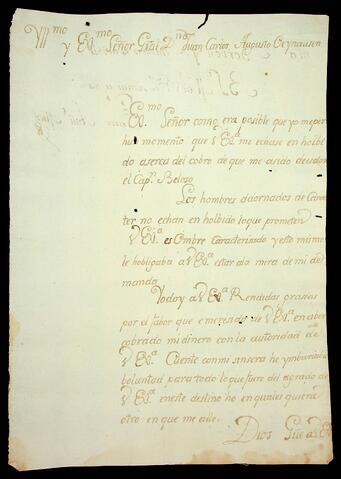 Yll^mo
y Ex^mo Señor Gral D^n Juan Carlos Augusto Oeynausen
Ex^mo
Señor como era posible que yo me per
momento que V E^a me echase en holbi
do aserca del cobro de que me asido deudor
el Cap^n Beloso
Los hombres adornados de Carac
ter no echan en holbido lo que prometen
V Ex^a es Ombre Caracterizado y esto mismo
le hobligaba a V Ex^a estar ala mira de mi de
manda
Yo doy a V Ex^a Rendidas grasias
por el fabor que e meresido de V Ex^a en aber
cobrado mi dinero con la autoridad de
V Ex^a Cuente con mi sinsera he ymbariable
boluntad para todo lo que fuere del agrado de
V Ex^a en este destino o en qualesquiera
otro en que me alle.
Dios Gue a V Ex